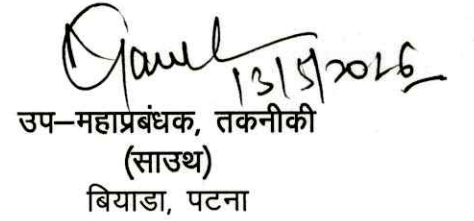 13/5/2026
उप–महाप्रबंधक, तकनीकी
(साउथ)
बियाडा, पटना